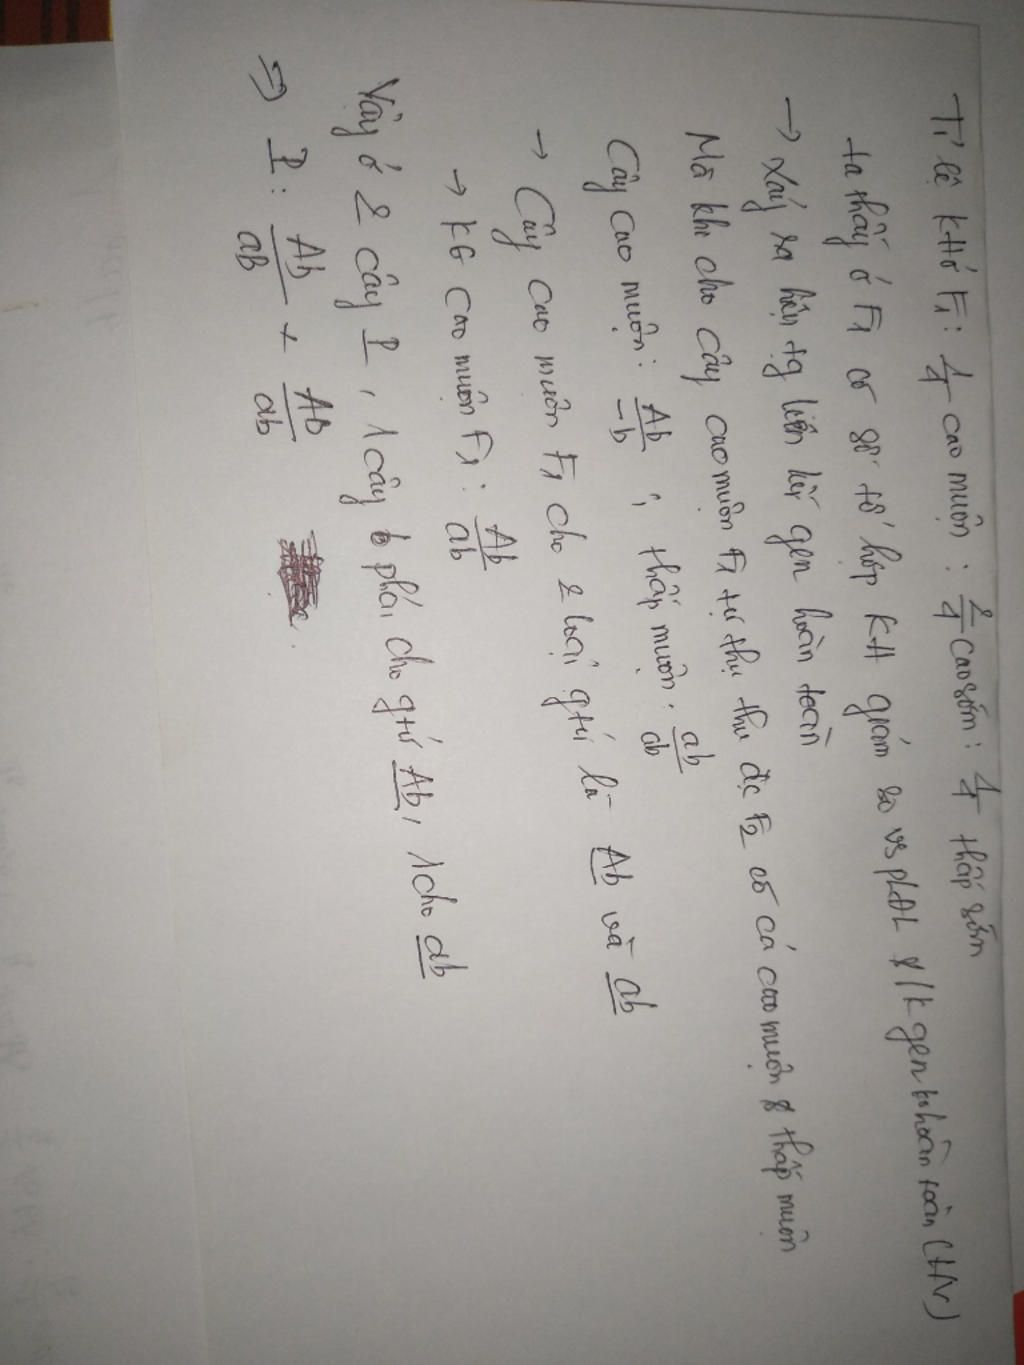 Tỉ lệ KH ở F1: 1/4 cao muộn : 2/4 cao sớm : 1/4 thấp sớm
ta thấy ở F1 có số tổ hợp KH giảm so vs PLĐL & lk gen k hoàn toàn (HN)
→ Xảy ra hiện tg liên kết gen hoàn toàn
Mà khi cho cây cao muộn F1 tự thụ thu đc F2 có cả cao muộn & thấp muộn
Cây cao muộn: Ab/-b ; thấp muộn: ab/ab
→ Cây cao muộn F1 cho 2 loại gtử là Ab và ab
→ KG cao muộn F1: Ab/ab
Vậy ở 2 cây P, 1 cây phải cho gtử Ab, 1 cho ab
=> P: Ab/aB x AB/ab